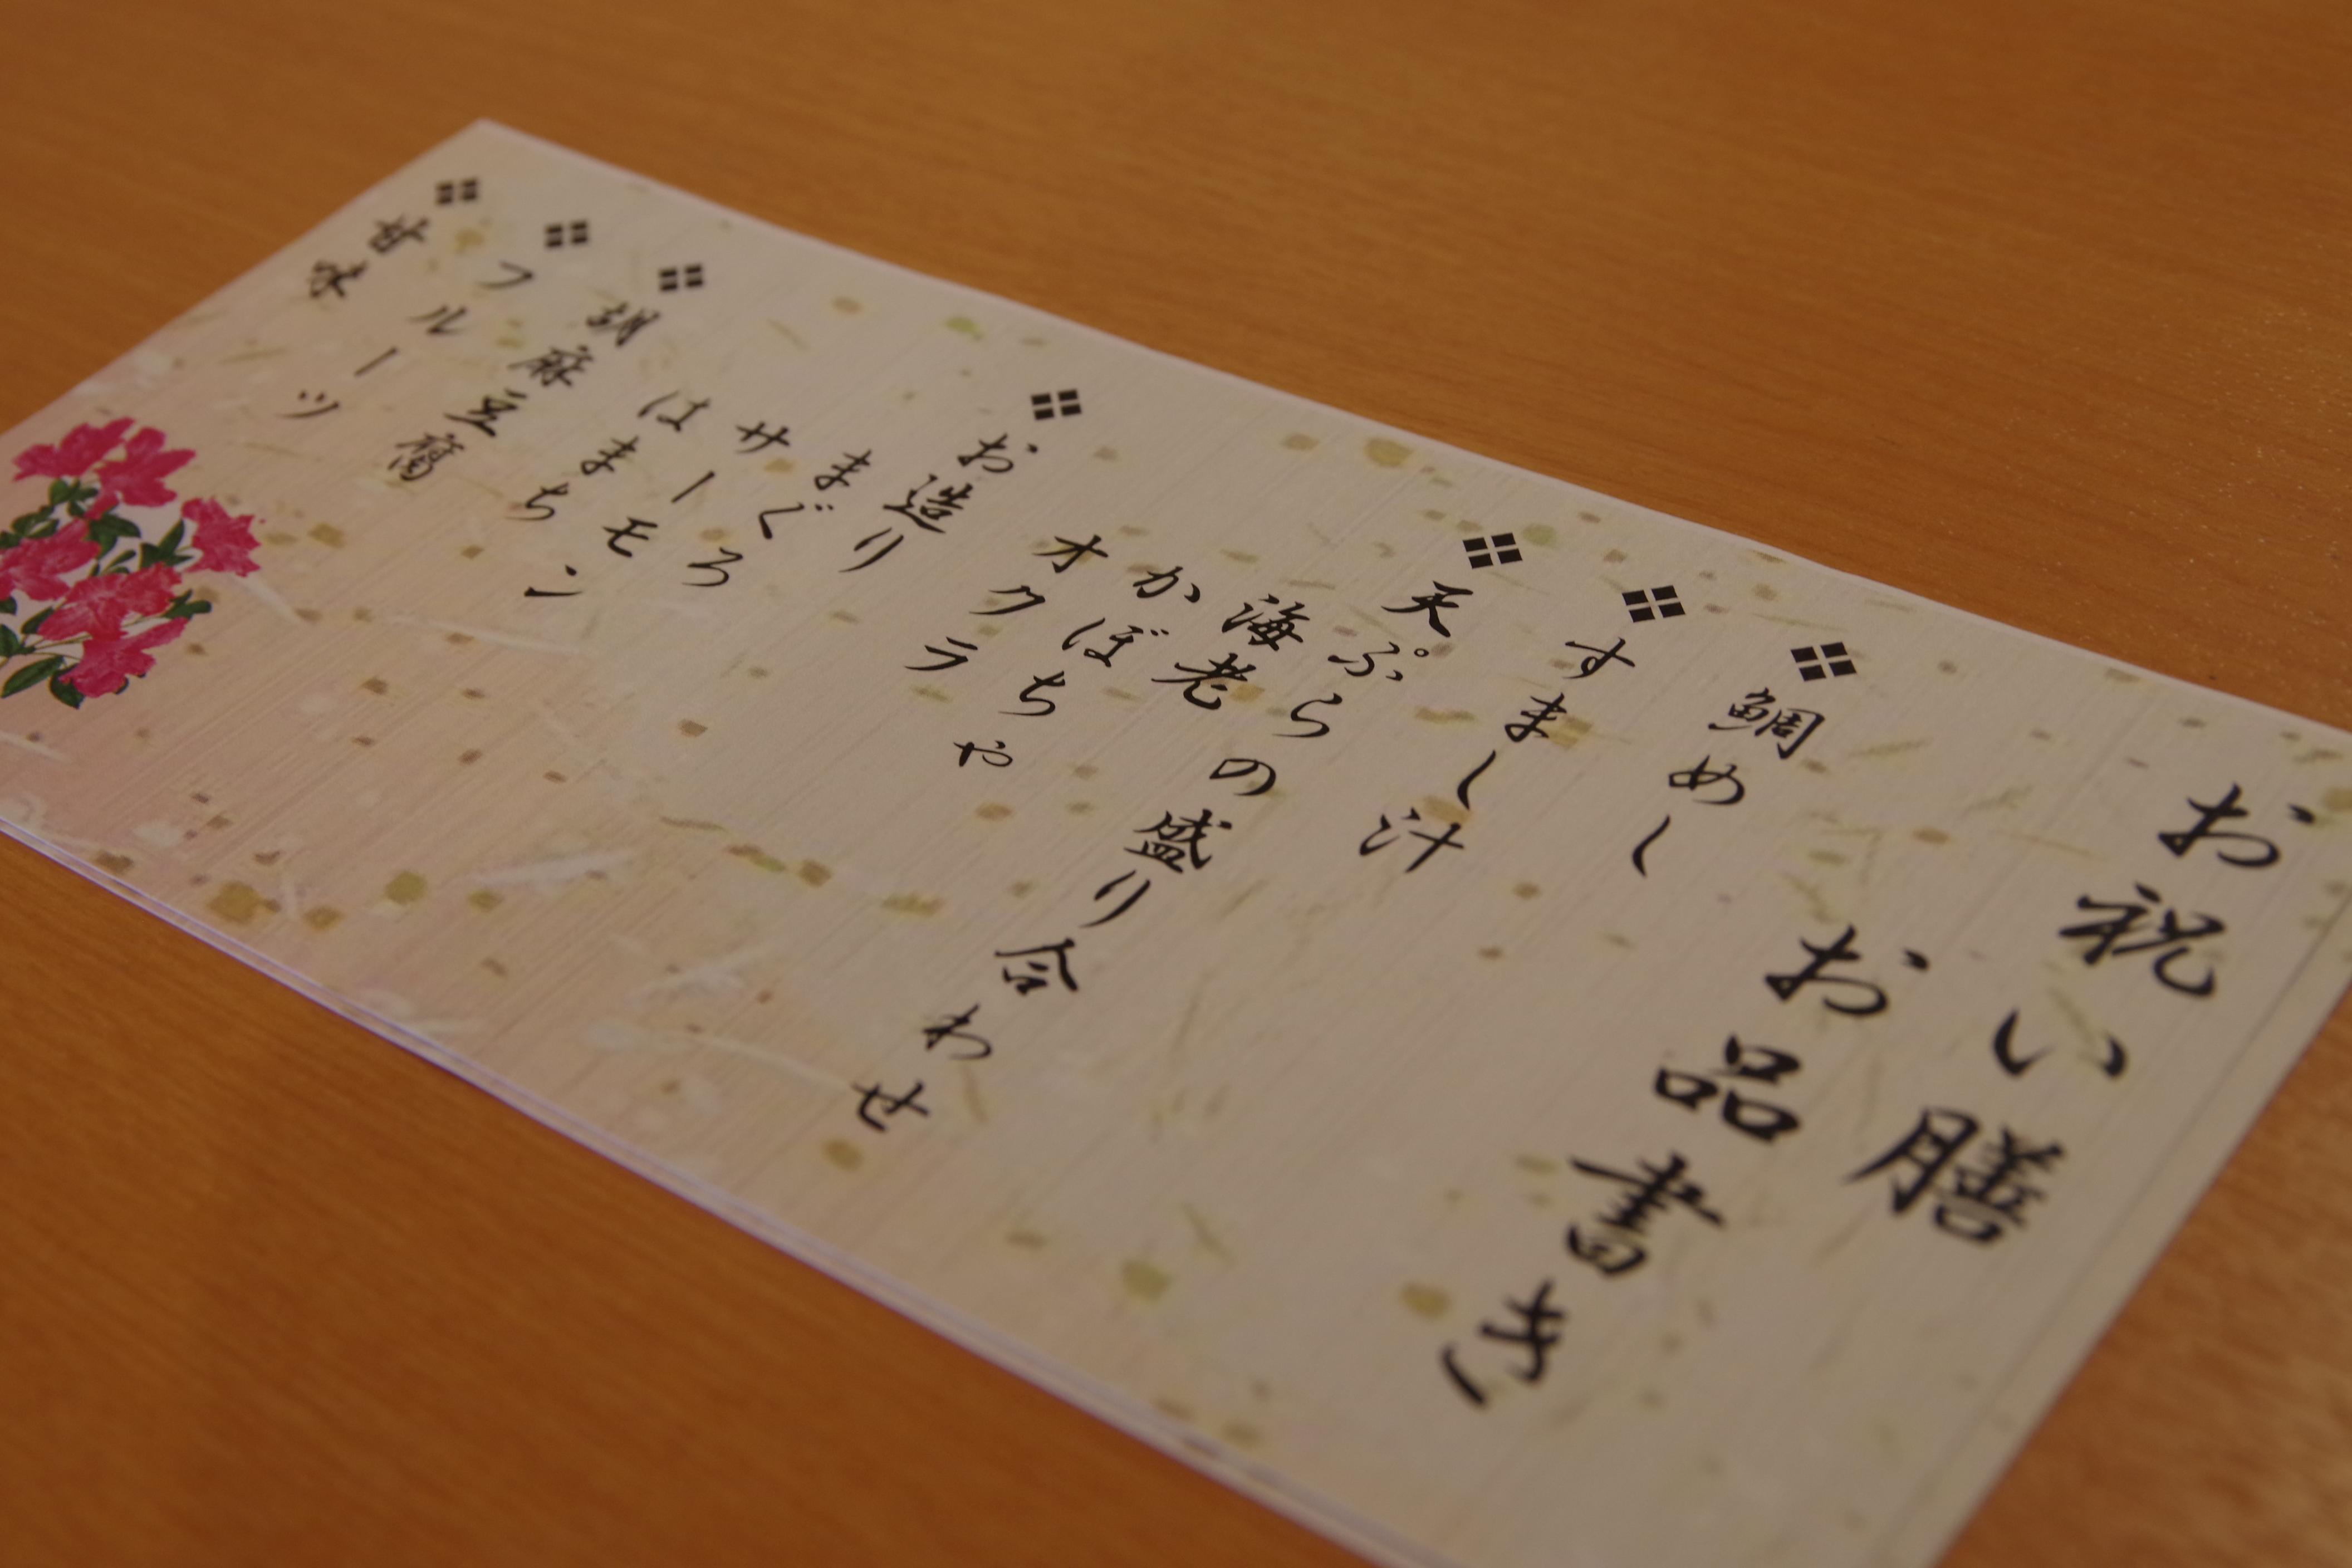 お祝い膳
お品書き
❖鯛めし
❖すまし汁
❖天ぷらの盛り合わせ
海老
かぼちゃ
オクラ
❖お造り
まぐろ
サーモン
はまち
❖胡麻豆腐
❖フルーツ
❖甘味